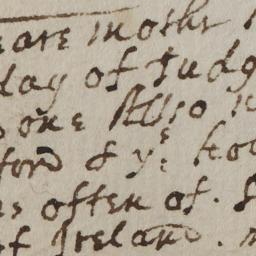 eare mother
day of Judg
one Also
ford & ye
he often of. S
of Ireland.